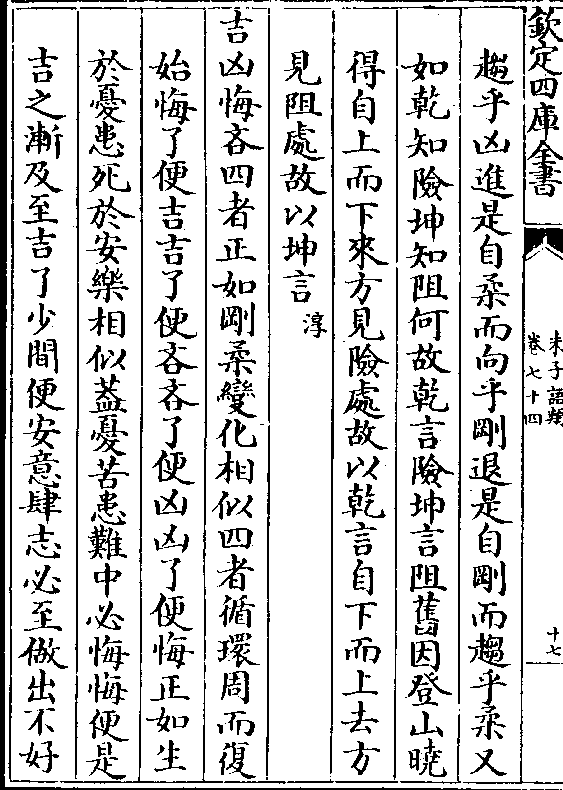 欽定四庫全書
朱子語類
卷七十四
十七
趨乎凶進是自柔而向乎剛退是自剛而趨乎柔又
如乾知險坤知阻何故乾言險坤言阻舊因登山曉
得自上而下來方見險處故以乾言自下而上去方
見阻處故以坤言淳
吉凶悔吝四者正如剛柔變化相似四者循環周而復
始悔了便吉吉了便吝吝了便凶凶了便悔正如生
於憂患死於安樂相似蓋憂苦患難中必悔悔便是
吉之漸及至吉了少間便安意肆志必至做出不好